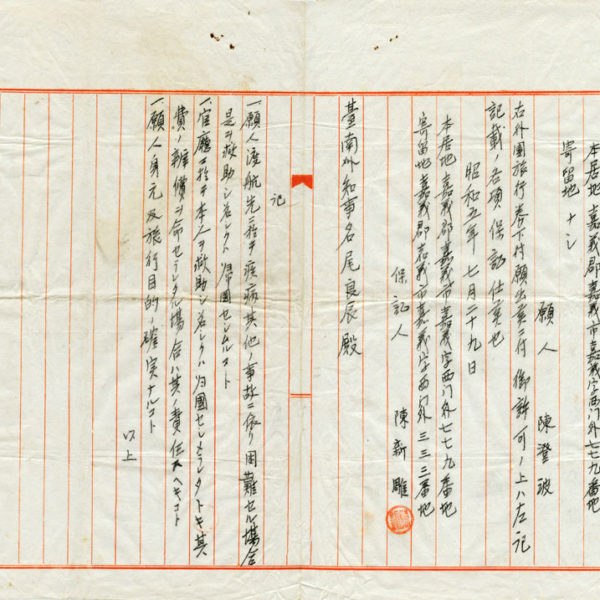 本居地 嘉義郡嘉義市嘉義字西門外七七九番地
寄留地 ナシ
願人 陳澄波
右外國旅行券下付願出候ニ付御許可ノ上ハ左記
記載ノ各項保證仕候也
昭和五年七月二十九日
本居地 嘉義郡嘉義市嘉義字西门外七七九番地
寄留地 嘉義郡嘉義市嘉義字西门外三三三番地
保証人 陳新雕
臺南州知事名尾良辰殿
記
一、願人渡航先ニ於テ疾病其他ノ事故ニ依リ困難セル場合
是ヲ救助シ若シクハ帰國セシムルコト
一、官廳ニ於テ本人ヲ救助シ若シクハ归國セシメラレタルトキ其
費ノ辨償ヲ命セラレタル場合ハ其ノ責任スヘキコト
一、願人身元及旅行目的ノ確実ナルコト
以上